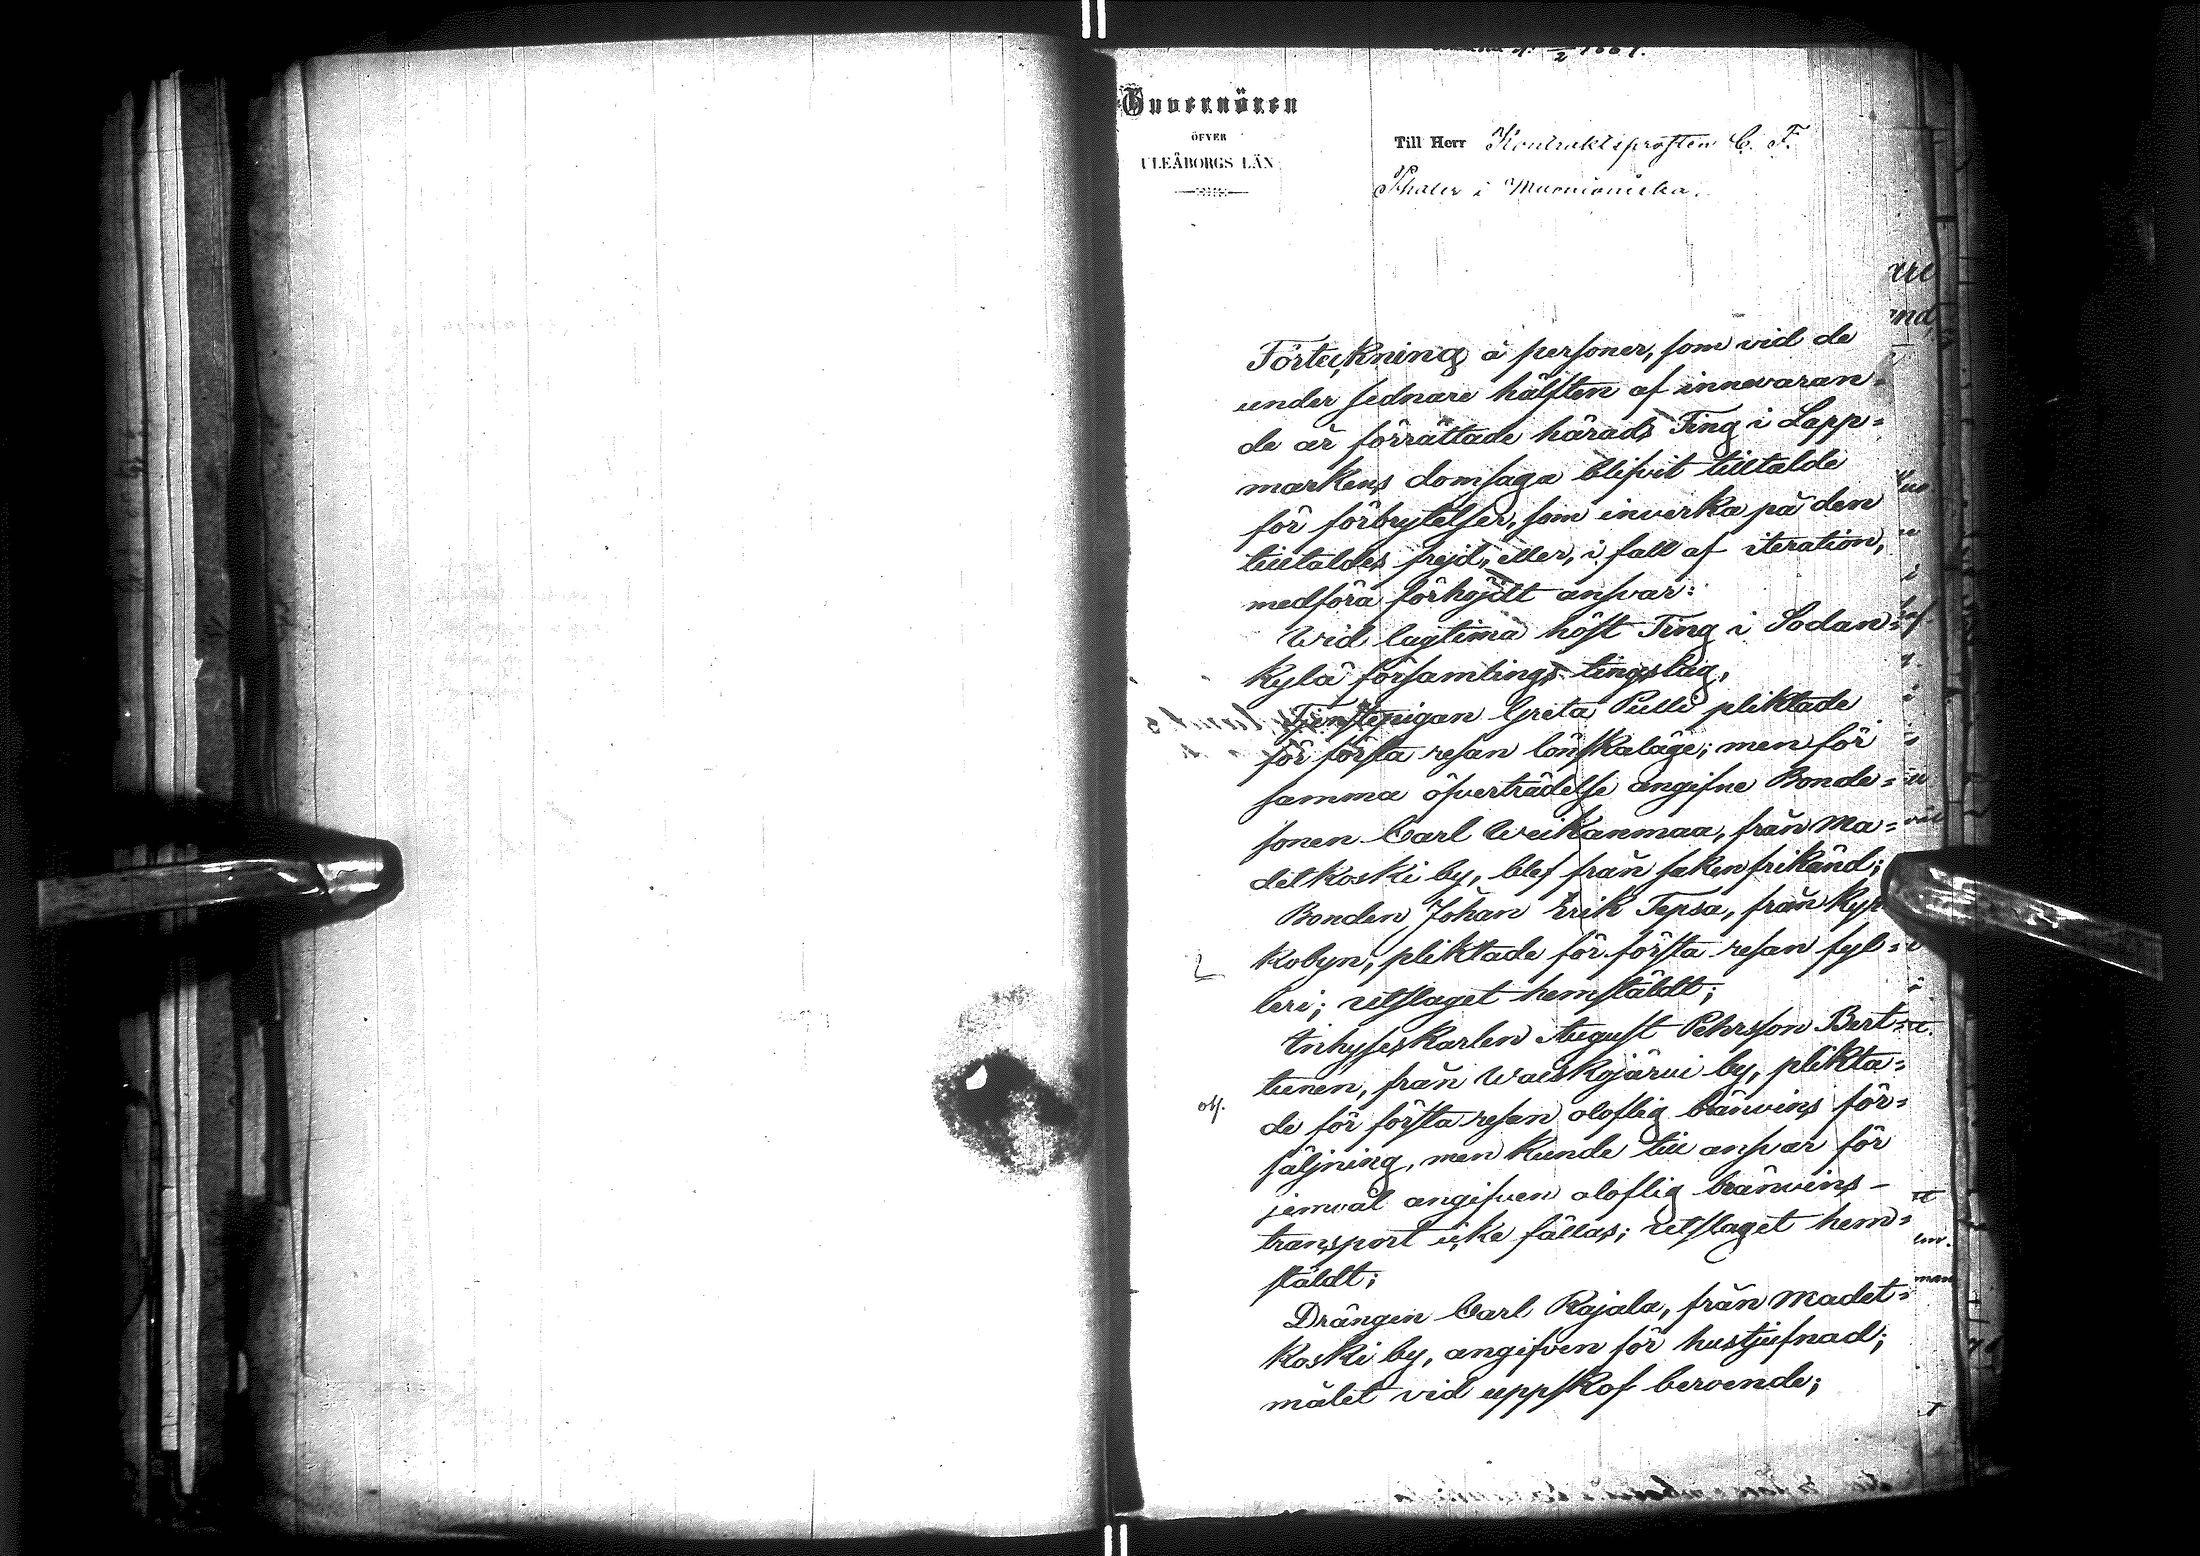 Guvernören
ÖFVER
ULEÅBORGS LÄN
Till Herr Kontraktsprosten C. F.
Thaler i Muonioniska.
Förteckning å personer, som vid de
under sednare hälften af innevaran-
de år förrättade härads Ting i Lapp-
markens domsaga blifvit tilltalde
för förbrytelser, som inverka på den
tilltaldes frejd, eller, i fall af iteration,
medföra förhöjdt ansvar:
Wid lagtima höst Ting i Sodan-
kylä församlings tingslag,
Tjenstepigan Greta Pulli pliktade
för första resan lönskaläge; men för
samma öfverträdelse angifne Bonde-
sonen Carl Weikanmaa, från Ma-
detkoski by, blef från saken frikänd;
Bonden Johan Erik Tepsa, från Kyr
kobyn, pliktade för första resan fyl-
leri; utslaget hemstäldt;
Inhyseskarlen August Pehrsson Bert-
tunen, från Waiskojärvi by, plikta-
de för första resan oloflig bränvins för-
säljning, men kunde till ansvar för
jemväl angifven oloflig bränvins-
transport icke fällas; utslaget hem-
stäldt;
Drängen Carl Rajala, från Madet-
koski by, angifven för hustjufnad;
målet vid uppskof beroende;